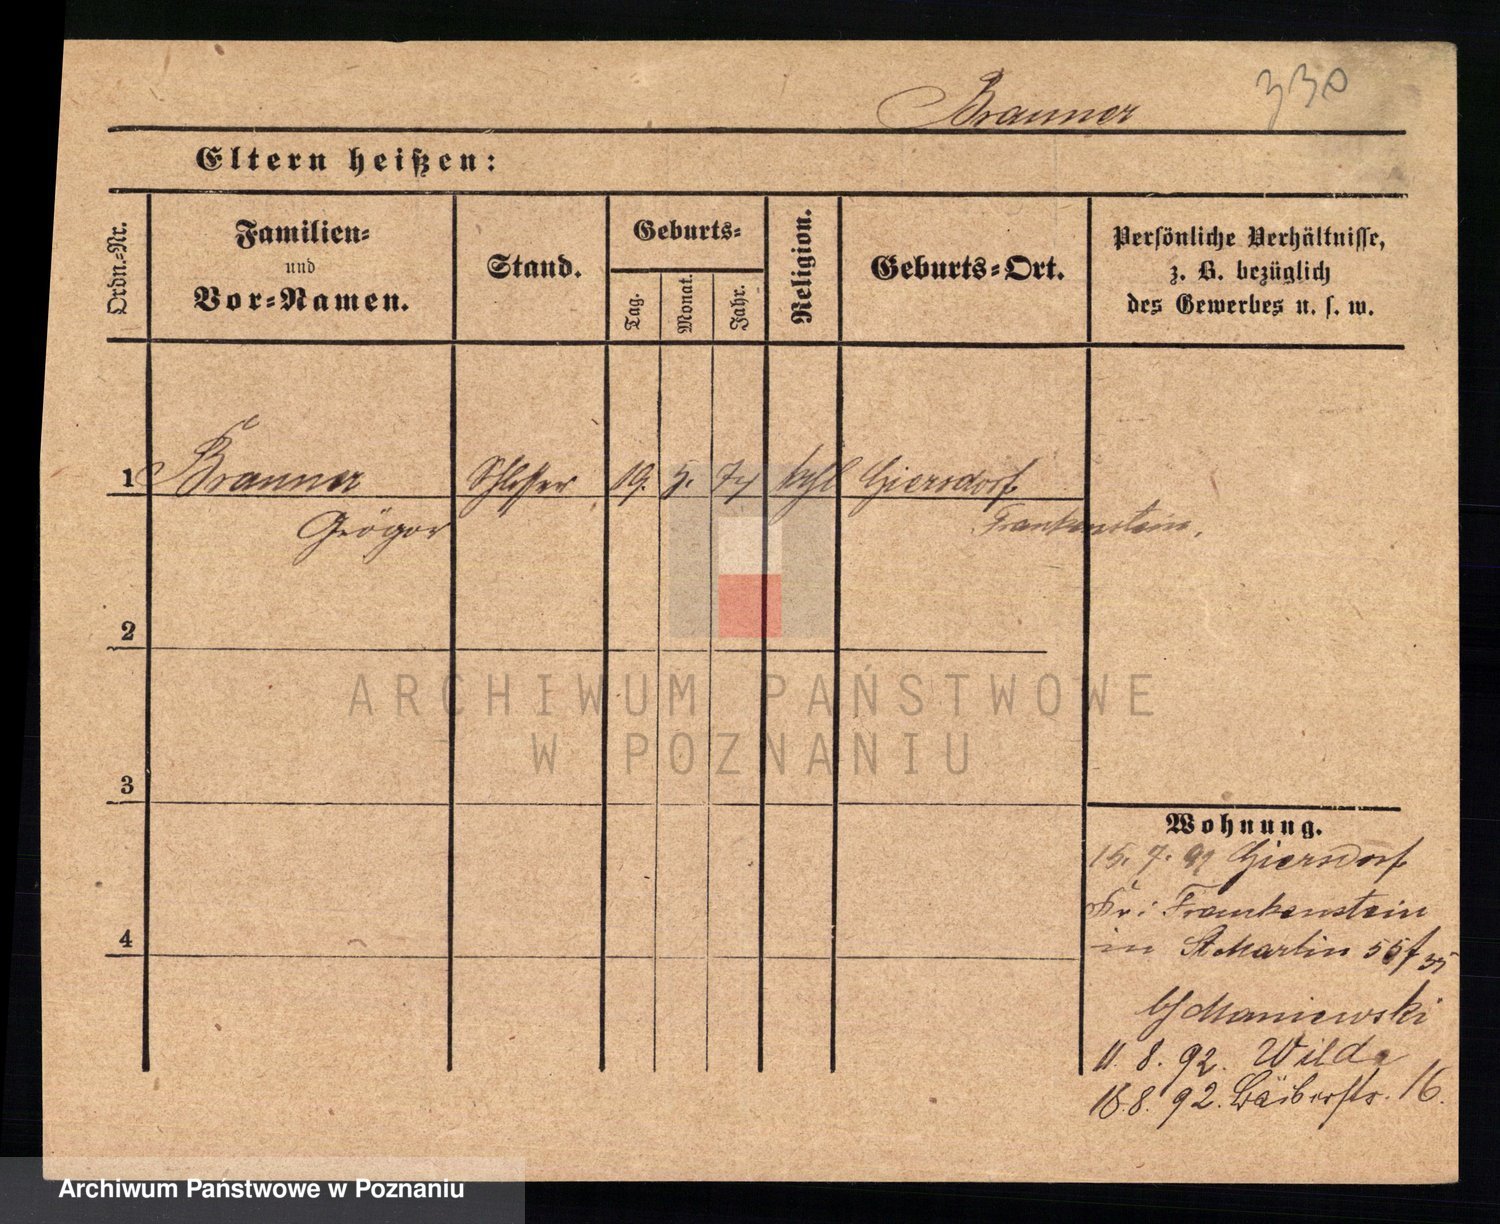 330
Branner
Eltern heißen:
Ordn.-Nr.
Familien-
und
Vor-Namen.
Stand.
Geburts-
Tag.
Monat.
Jahr.
Religion.
Geburts-Ort.
Persönliche Verhältnisse,
z. B. bezüglich
des Gewerbes u. s. w.
1 Branner Schlosser 19. 5. 74 kthl Giersdorf
Gregor Frankenstein.
2
3
4
ARCHIWUM PAŃSTWOWE
W POZNANIU
Wohnung.
15. 7. 92 Giersdorf
Kr: Frankenstein
in St Martin
b/ Maniewski
11. 8. 92. Wilda
18. 8. 92. 16.
Archiwum Państwowe w Poznaniu